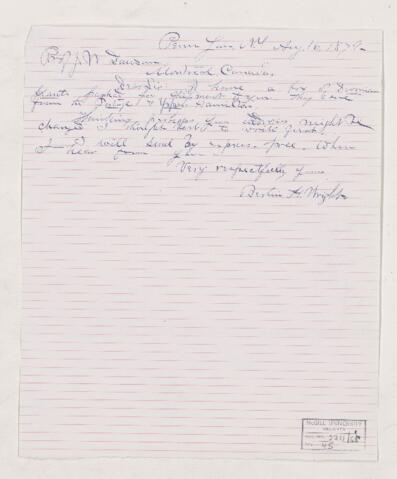 Penn Yan, N.Y. Aug. 16, 1879.
Prof. J. W. Dawson
Montreal Canada.
Dear Sir I have a box of Devonian
Plants packed for shipment to you. They are
from the Portage & Upper Hamilton.
Thinking perhaps your address might be
changed I thought best to write first.
I will send by express free. When
I hear from you.
Very respectfully yours
Berlin H. Wright
McGILL UNIVERSITY
ARCHIVES
ACC. NO.
REF. 45